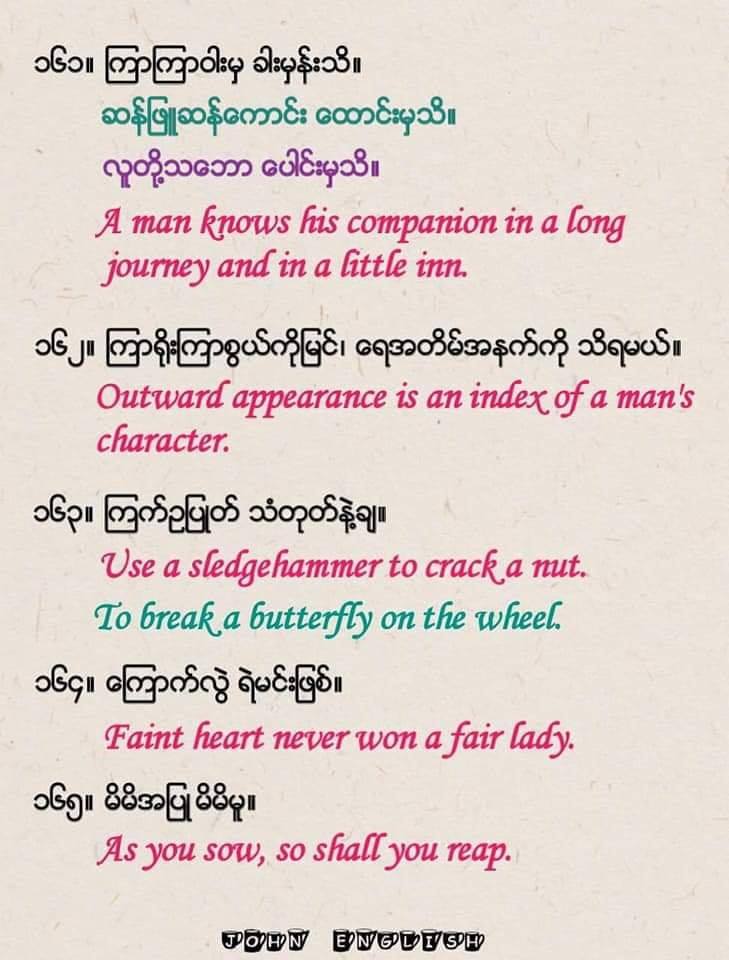 ၁၆၁။ ကြာကြာဝါးမှ ခါးမှန်းသိ။
ဆန်ဖြူဆန်ကောင်း ထောင်းမှသိ။
လူတို့သဘော ပေါင်းမှသိ။
A man knows his companion in a long
journey and in a little inn.
၁၆၂။ ကြာရိုးကြာစွယ်ကိုမြင်၊ ရေအတိမ်အနက်ကို သိရမယ်။
Outward appearance is an index of a man's
character.
၁၆၃။ ကြက်ဥပြုတ် သံတုတ်နဲ့ချ။
Use a sledgehammer to crack a nut.
To break a butterfly on the wheel.
၁၆၄။ ကြောက်လွဲ ရဲမင်းဖြစ်။
Faint heart never won a fair lady.
၁၆၅။ မိမိအပြု မိမိမူ။
As you sow, so shall you reap.
JOHN ENGLISH